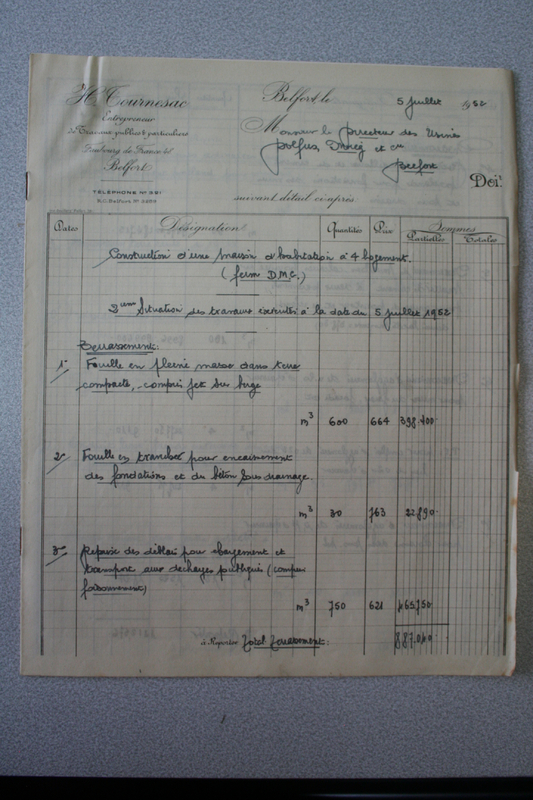 H. Tournesac
Entrepreneur
de Travaux publics & particuliers
Faubourg de France 41
Belfort
TÉLÉPHONE Nº 551
Belfort, le 5 Juillet 1952
Monsieur le Directeur des Usines
Dolfus Mieg et Cie
Belfort
Doit
suivant détail ci-après
Dates Désignation Quantités Prix Sommes
Partielles Totales
Construction d'une maison d'habitation à 4 logement.
(ferm D.M.C.)
2eme Situation des travaux exécutés à la date du 5 Juillet 1952
Terrassement:
1º Fouille en pleine masse dans terre
compacte, compris jet sur berge
m3 600 664 398.400
2º Fouille en tranchée pour encaissement
des fondations et du béton sous drainage.
m3 30 763 22.890
3º Reprise des déblais pour chargement et
transport aux décharges publiques (compris
foisonnement)
m3 750 621 465.750
à Reporter Total Terrassement: 887.040